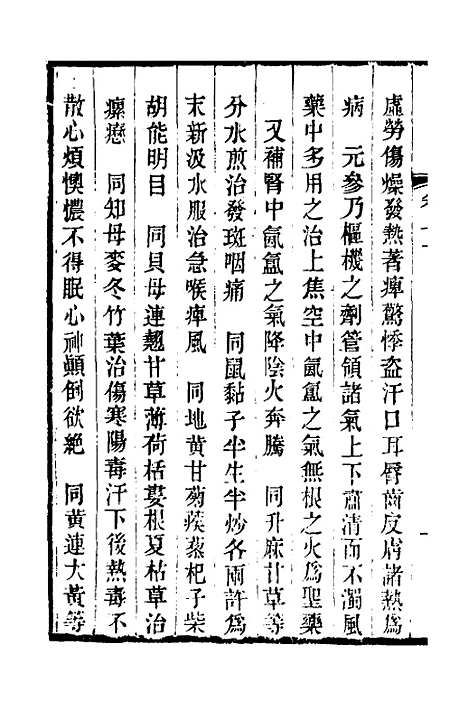 虛勞傷燥發熱著痺驚悸盗汗口耳唇齒皮膚諸熱爲
病　元參乃樞機之劑管領諸氣上下肅清而不濁風
藥中多用之治上焦空中氤氳之氣無根之火爲聖藥
又補腎中氤氳之氣降陰火奔騰　同升麻甘草等
分水煎治發斑咽痛　同鼠黏子半生半炒各兩許爲
末新汲水服治急喉痺風　同地黃甘菊蒺蔾杞子柴
胡能明目　同貝母連翹甘草薄荷栝蔞根夏枯草治
瘰癧　同知母麥冬竹葉治傷寒陽毒汗下後熱毒不
散心煩懊憹不得眠心神顚倒欲絶　同黃連大黃等